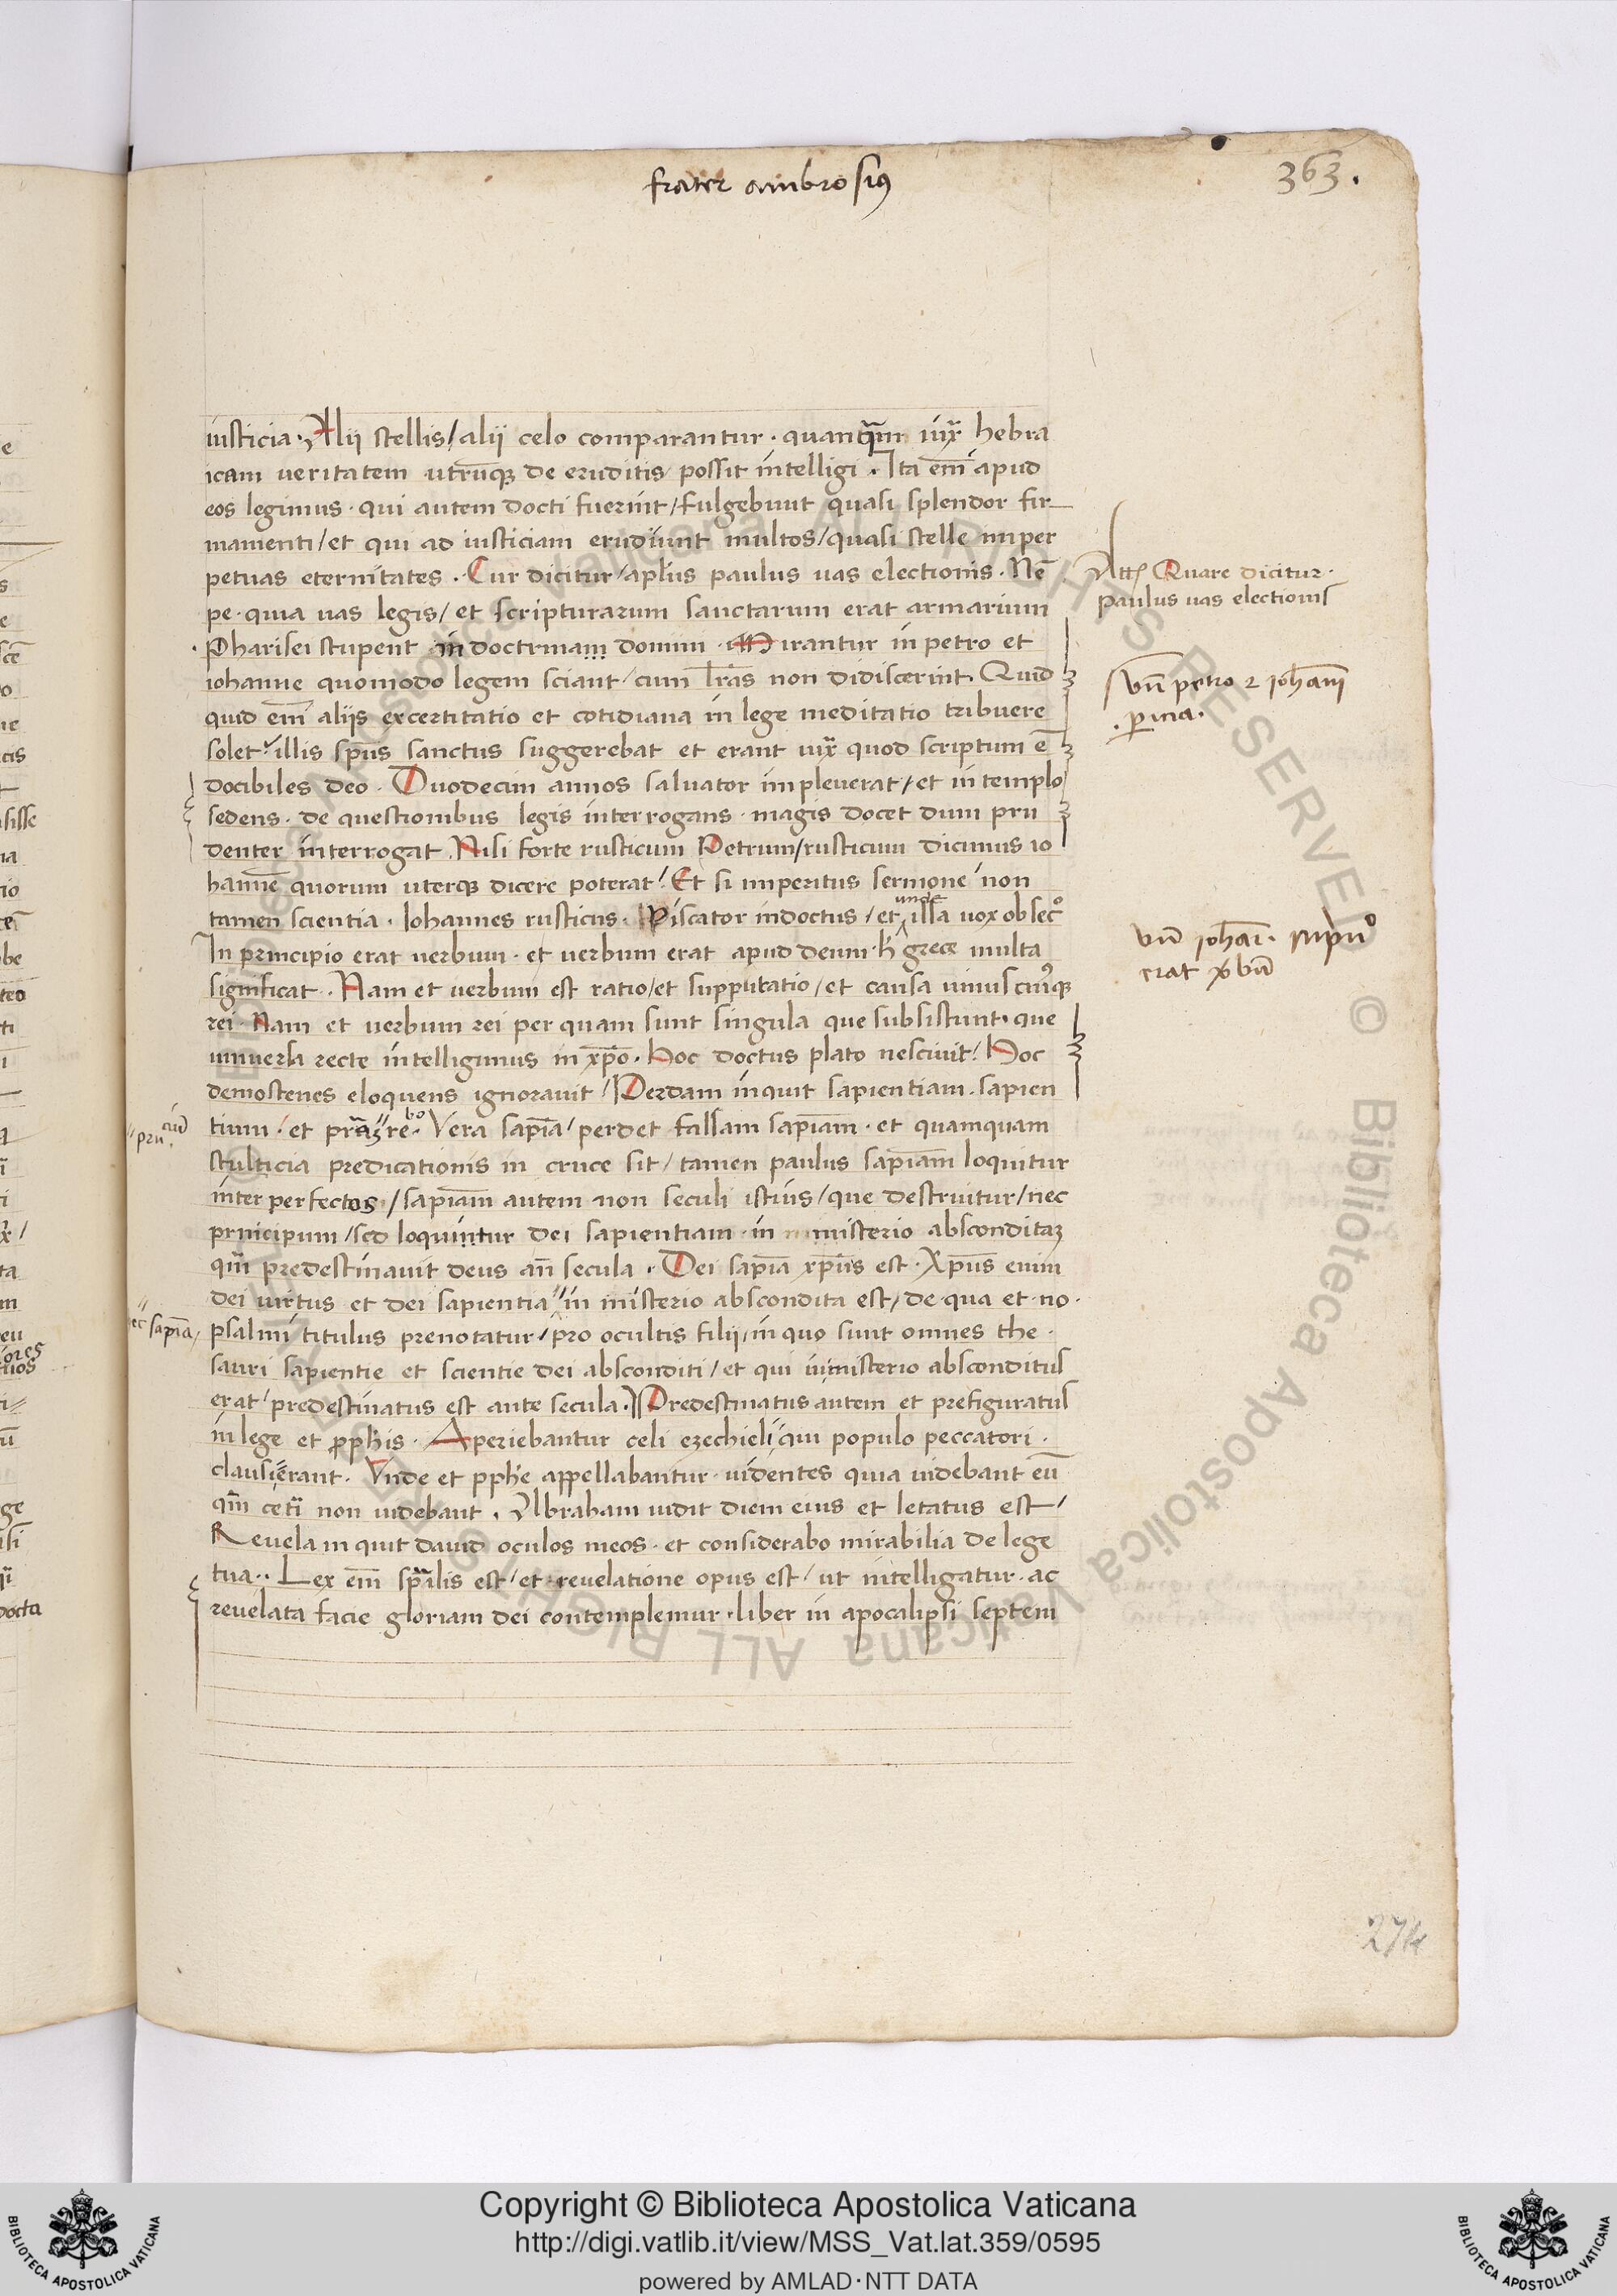 frater ambrosius
363.
iusticia. Alii stellis / alii celo comparantur. quanquam iux̄ hebra
icam veritatem utrunq; de eruditis possit intelligi. Ita em̄ apud
eos legimus. qui autem docti fuerint / fulgebunt quasi splendor fir
mamenti / et qui ad iusticiam erudiunt multos / quasi stelle in per
petuas eternitates. Cur dicitur / apl̄us paulus uas electionis. Nē
pe. quia uas legis / et scripturarum sanctarum erat armarium
Pharisei stupent in doctrinam domini. Mirantur in petro et
iohanne quomodo legem sciant / cum l̄ras non didiscerint. Quid
quid em̄ aliis excertitatio et cotidiana in lege meditatio tribuere
solet / illis sp̄us sanctus suggerebat et erant iux̄ quod scriptum ē
docibiles deo. Duodecim annos salvator impleverat / et in templo
sedens. de questionibus legis interrogans. magis docet dum pru
denter interrogat. Nisi forte rusticum Petrum / rusticum dicimus io
hannē quorum uterq; dicere poterat / Et si imperitus sermone non
tamen scientia. Iohannes rusticus. Piscator indoctus / et unde illa vox obsec°
In principio erat verbum. et verbum erat apud deum. h̄ grece multa
significat. Nam et verbum est ratio / et supputatio / et causa uniuscuiusq;
rei. Nam et verbum rei per quam sunt singula que subsistunt. que
universa recte intelligimus in xp̄o. Hoc doctus plato nescivit / Hoc
demostenes eloquens ignoravit / Perdam inquit sapientiam. sapien
tium. et prāʒ re bo. Vera sapīa / perdet falsam sapīam. et quamquam
stulticia predicationis in cruce sit / tamen paulus sapīam loquitur
inter perfectos / sapīam autem non seculi istius / que destruitur / nec
principum / sed loquuntur dei sapientiam in misterio absconditaʒ
qm̄ predestinavit deus an̄ secula. Dei sapīa xp̄us est. Xp̄us enim
dei virtus et dei sapientia // in misterio abscondita est / de qua et no.
psalmi titulus prenotatur / pro ocultis filii / in quo sunt omnes the.
sauri sapientie et scientie dei absconditi / et qui in misterio absconditus
erat / predestinatus est ante secula. Predestinatus autem et prefiguratus
in lege et pp̄his. Aperiebantur celi ezechieli qui populo peccatori.
clausi erant. Vnde et pp̄he appellabantur. videntes quia videbant eū
qm̄ cet̄i non videbant. Abraham vidit diem eius et letatus est /
Revela inquit david oculos meos. et considerabo mirabilia de lege
tua.. Lex em̄ sp̄ualis est / et revelatione opus est / ut intelligatur. ac
revelata facie gloriam dei contemplemur. liber in apocalipsi septem
Quare dicitur.
paulus uas electionis
vn̄ petro 2 ioh̄ani
vn̄ ioh̄ai. inpn°
erat v̄bū
sapīa
274
Copyright © Biblioteca Apostolica Vaticana
http://digi.vatlib.it/view/MSS_Vat.lat.359/0595
powered by AMLAD·NTT DATA
BIBLIOTECA APOSTOLICA VATICANA
BIBLIOTECA APOSTOLICA VATICANA
© Biblioteca Apostolica Vaticana ALL RIGHTS RESERVED